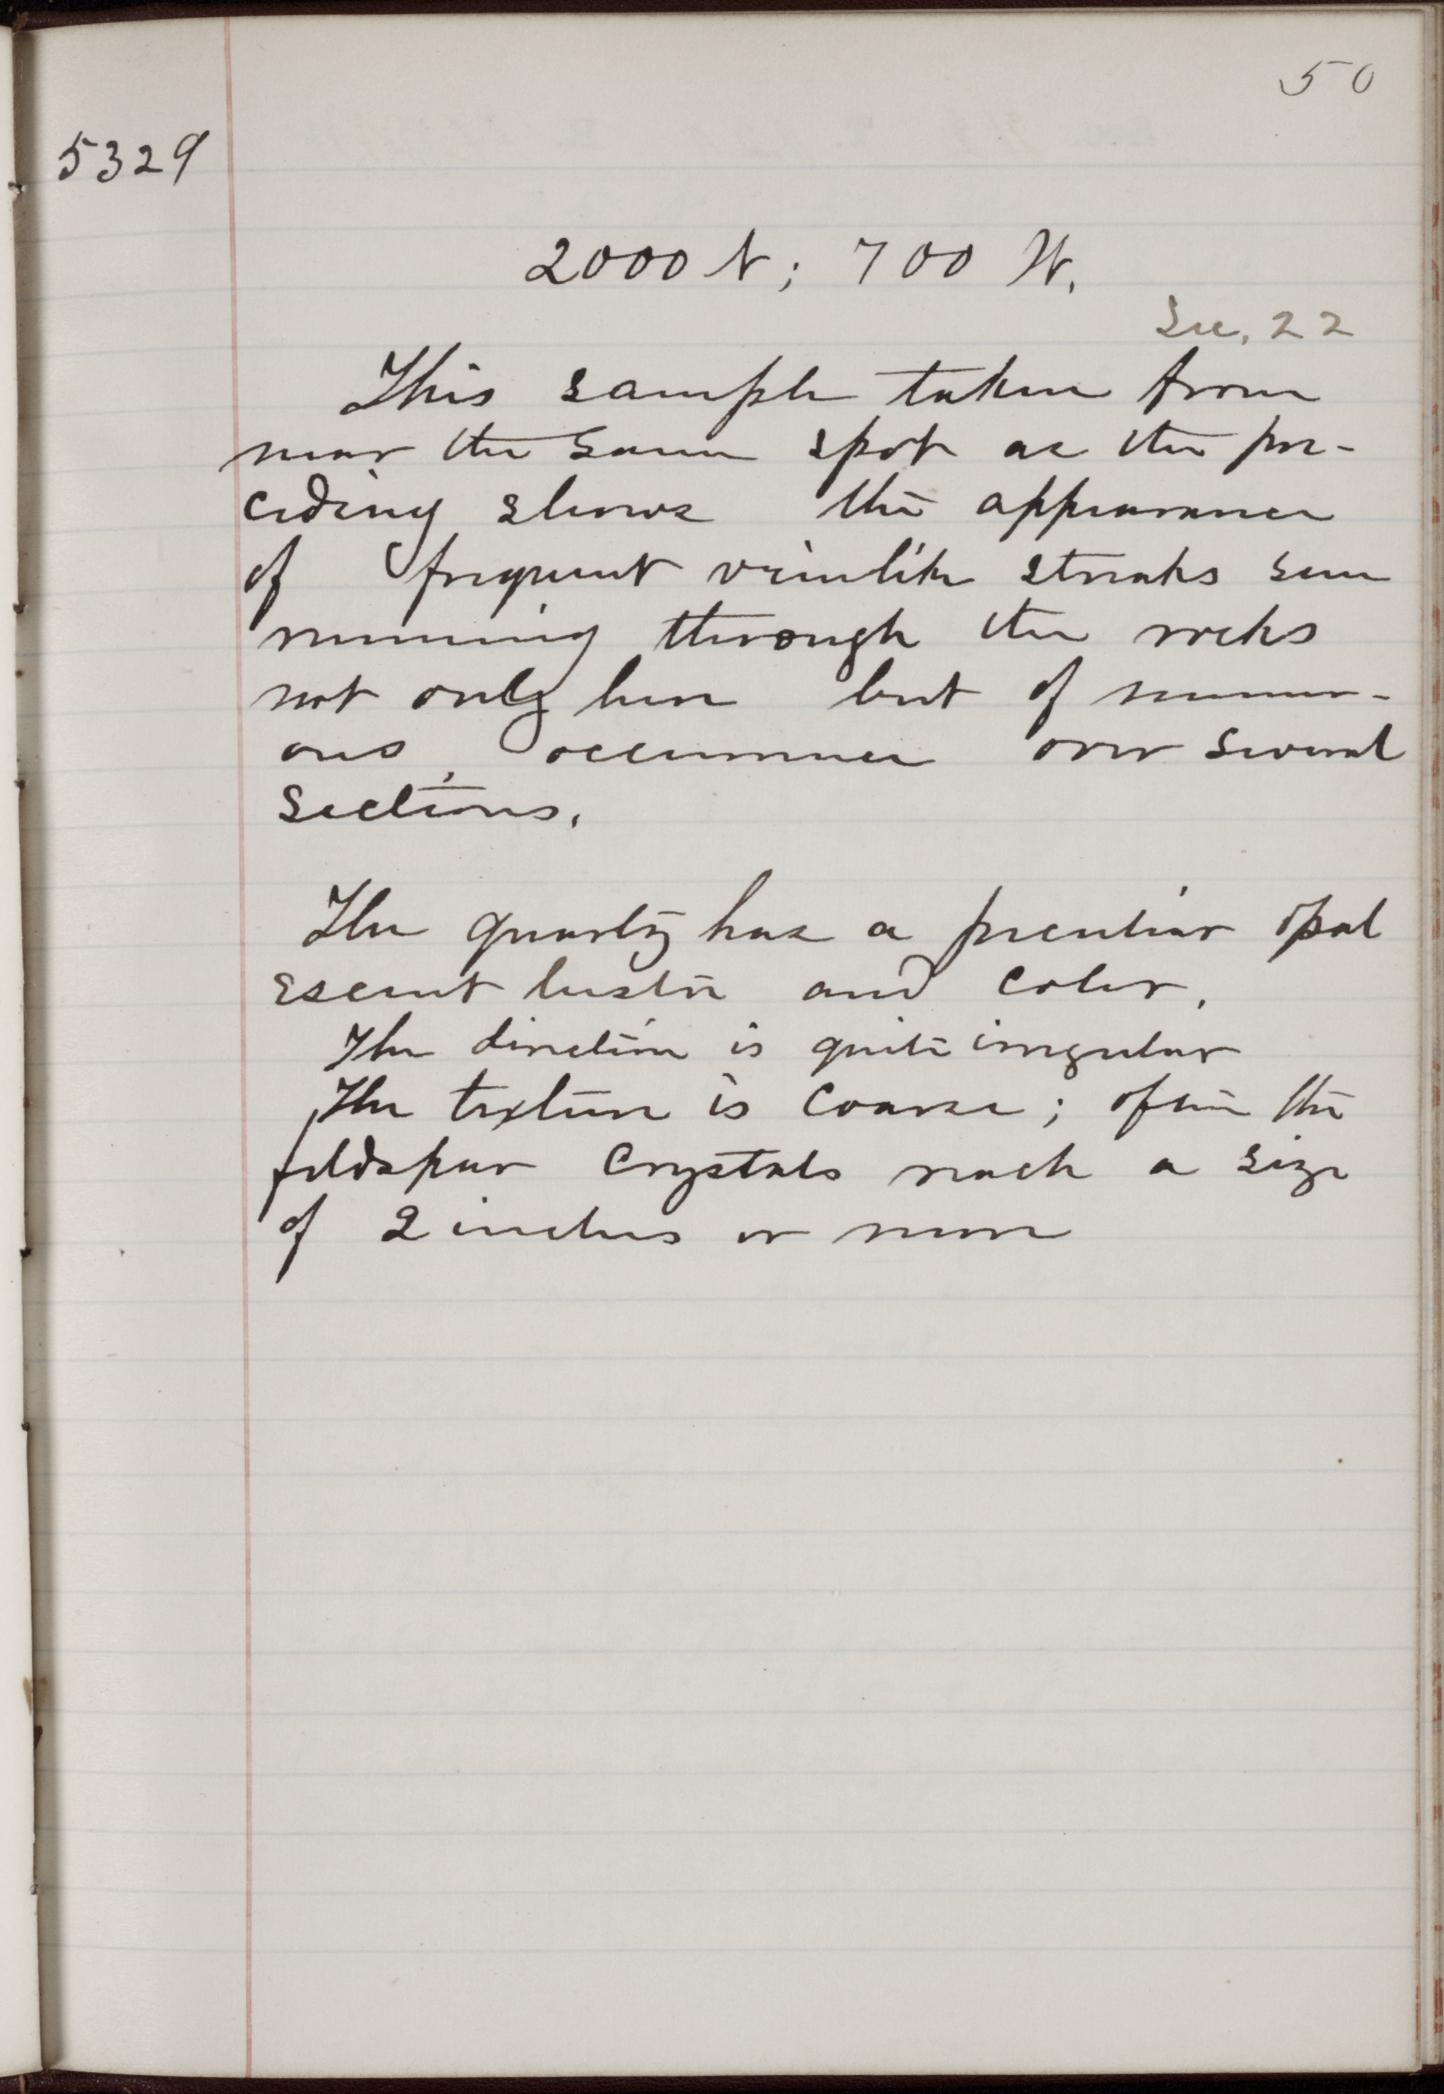 50
5329
2000 N; 700 W.
Sec. 22
This sample taken from
near the same spot as the pre-
ceding shows the appearance
of frequent veinlike streaks seen
running through the rocks
not only here but of numer-
ous occurrence over several
sections.
The quartz has a peculiar opal
escent lustre and color.
The direction is quite irregular
The texture is coarse; often the
feldspar crystals reach a size
of 2 inches or more